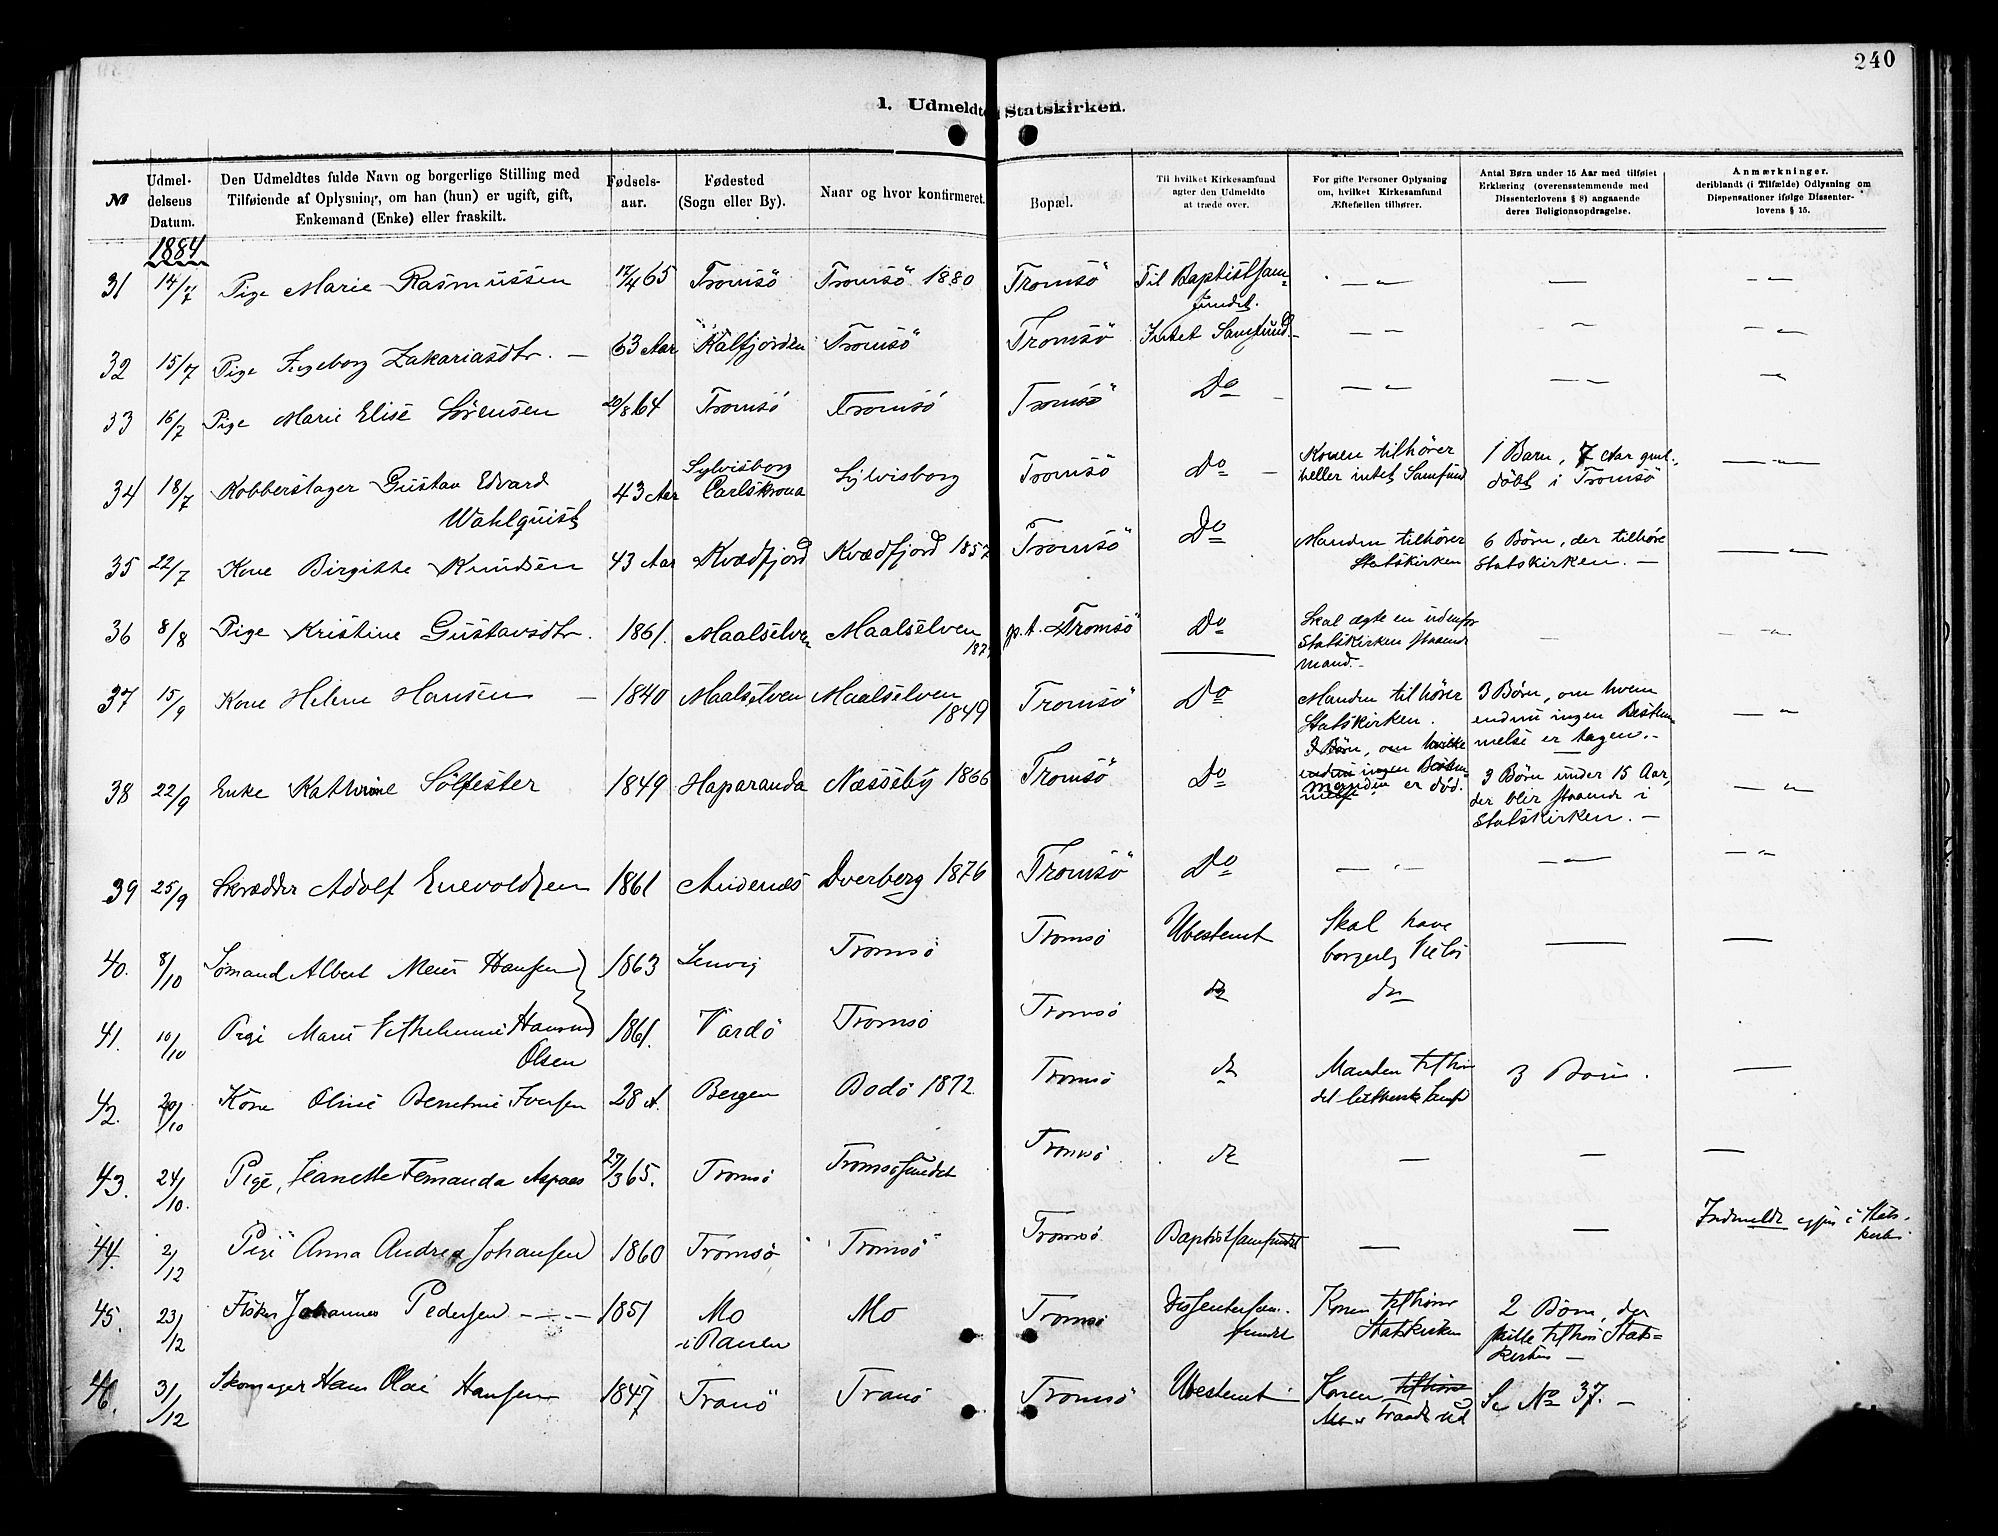 240
1. Udmeldte Statskirken.
№ | Udmeldelsens Datum. | Den Udmeldtes fulde Navn og borgerlige Stilling med Tilføiende af Oplysning, om han (hun) er ugift, gift, Enkemand (Enke) eller fraskilt. | Fødselsaar. | Fødested (Sogn eller By). | Naar og hvor konfirmeret. | Bopæl. | Til hvilket Kirkesamfund agter den Udmeldte at træde over. | For gifte Personer Oplysning om, hvilket Kirkesamfund Ægtefællen tilhører. | Antal Børn under 15 Aar med tilføiet Erklæring (overensstemmende med Dissenterlovens § 8) angaaende deres Religionsopdragelse. | Anmærkninger, deriblandt (i Tilfælde) Odlysning om Dispensationer ifølge Dissenterlovens § 15.
1884
31 | 14/7 | Pige Marie Rasmussen | 17/4 65 | Tromsö | Tromsö 1880 | Tromsö | Til Baptistsamfundet. | — „ — | — | — „ —
32 | 15/7 | Pige Ingeborg Zakariasdtr. — | 63 Aar | Kalfjorden | Tromsö | Tromsö | Intet Samfund. | — „ — | — | — „ —
33 | 16/7 | Pige Marie Elise Sörensen | 20/8 64 | Tromsö | Tromsö | Tromsö | Do | — „ — | — „ — | —
34 | 18/7 | Kobberslager Gustav Edvard Wahlquist | 43 Aar | Sylvisborg Carlskrona | Sylvisborg | Tromsö | Do — | Konen tilhörer heller intet Samfund | 1 Barn, 7 Aar gml., döbt i Tromsö | — „ —
35 | 22/7 | Kone Birgitte Knudsen | 43 Aar | Kvædfjord | Kvædfjord 1857 | Tromsö | Do | Manden tilhörer Statskirken | 6 Börn, der tilhöre Statskirken. — | — „ —
36 | 8/8 | Pige Kristine Gustavsdtr. | 1861. | Maalselven | Maalselven 187 | p.t. Tromsö | Do | Skal ægte en udenfor Statskirken staaende mand. — | — | — „ —
37 | 15/9 | Kone Helene Hansen — | 1840 | Maalselven | Maalselven 1849 | Tromsö | Do | Manden tilhörer Statskirken. | 3 Börn, om hvem endnu ingen Bestemmelse er tagen. — | — „ —
38 | 22/9 | Enke Kathrine Sölfester | 1849 | Haparanda | Næsseby 1866 | Tromsö | Do | 3 Börn, om hvilke endnu ingen Bestemmelse Manden er död. | 3 Börn under 15 Aar, der blir staaende i Statskirken. — | — „ —
39 | 25/9 | Skrædder Adolf Enevoldsen | 1861 | Andenæs | Dverberg 1876 | Tromsö | Do | — „ — | — „ — | — „ —
40. | 8/10 | Sømand Albert Meier Hansen | 1863 | Lenvig | Tromsö | Tromsö | Ubestemt | Skal have borgerlig Vielse | — | —
41. | 10/10 | Pige Marie Vilhelmine Hansen Olsen | 1861. | Vardö | Tromsö | Tromsö | do | do
42. | 20/10 | Kone Oline Berntine Iversen | 28 A. | Bergen | Bodö 1872. | Tromsö | do | Manden tilhør det lutherske Samf | 3 Børn. | —
43. | 24/10. | Pige, Jeanette Fernanda Aspaas | 27/3 65. | Tromsö | Tromsösundet | Tromsö | do | — | — | —
44. | 2/12 | Pige Anna Andrea Johansen | 1860 | Tromsö | Tromsö | Tromsö | Baptistsamfundet | — | — | Indmeldt igjen i Statskirken
45. | 23/12 | Fisker Johannes Pedersen — — — | 1851 | Mo i Ranen | Mo | Tromsö | Dissentersamfundet | Konen tilhører Statskirken | 2 Børn, der skulle tilhøre Statskirken —
46. | 31/12 | Skomager Hans Olai Hansen | 1847 | Tranö | Tranö | Tromsö | Ubestemt | Konen tilhører traadt ud | Se No 37. —